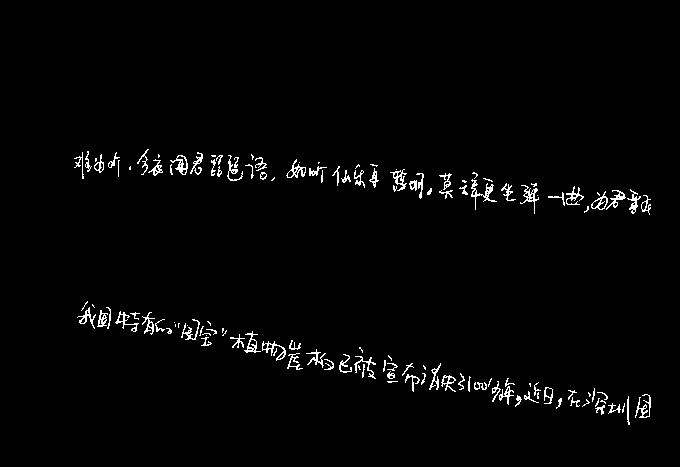 难为听。今夜闻君琵琶语,如听仙乐耳暂明。莫辞更坐弹一曲,为君翻
我国特有的“国宝”植物崖柏已被宣布消失了100多年。近日,在深圳国